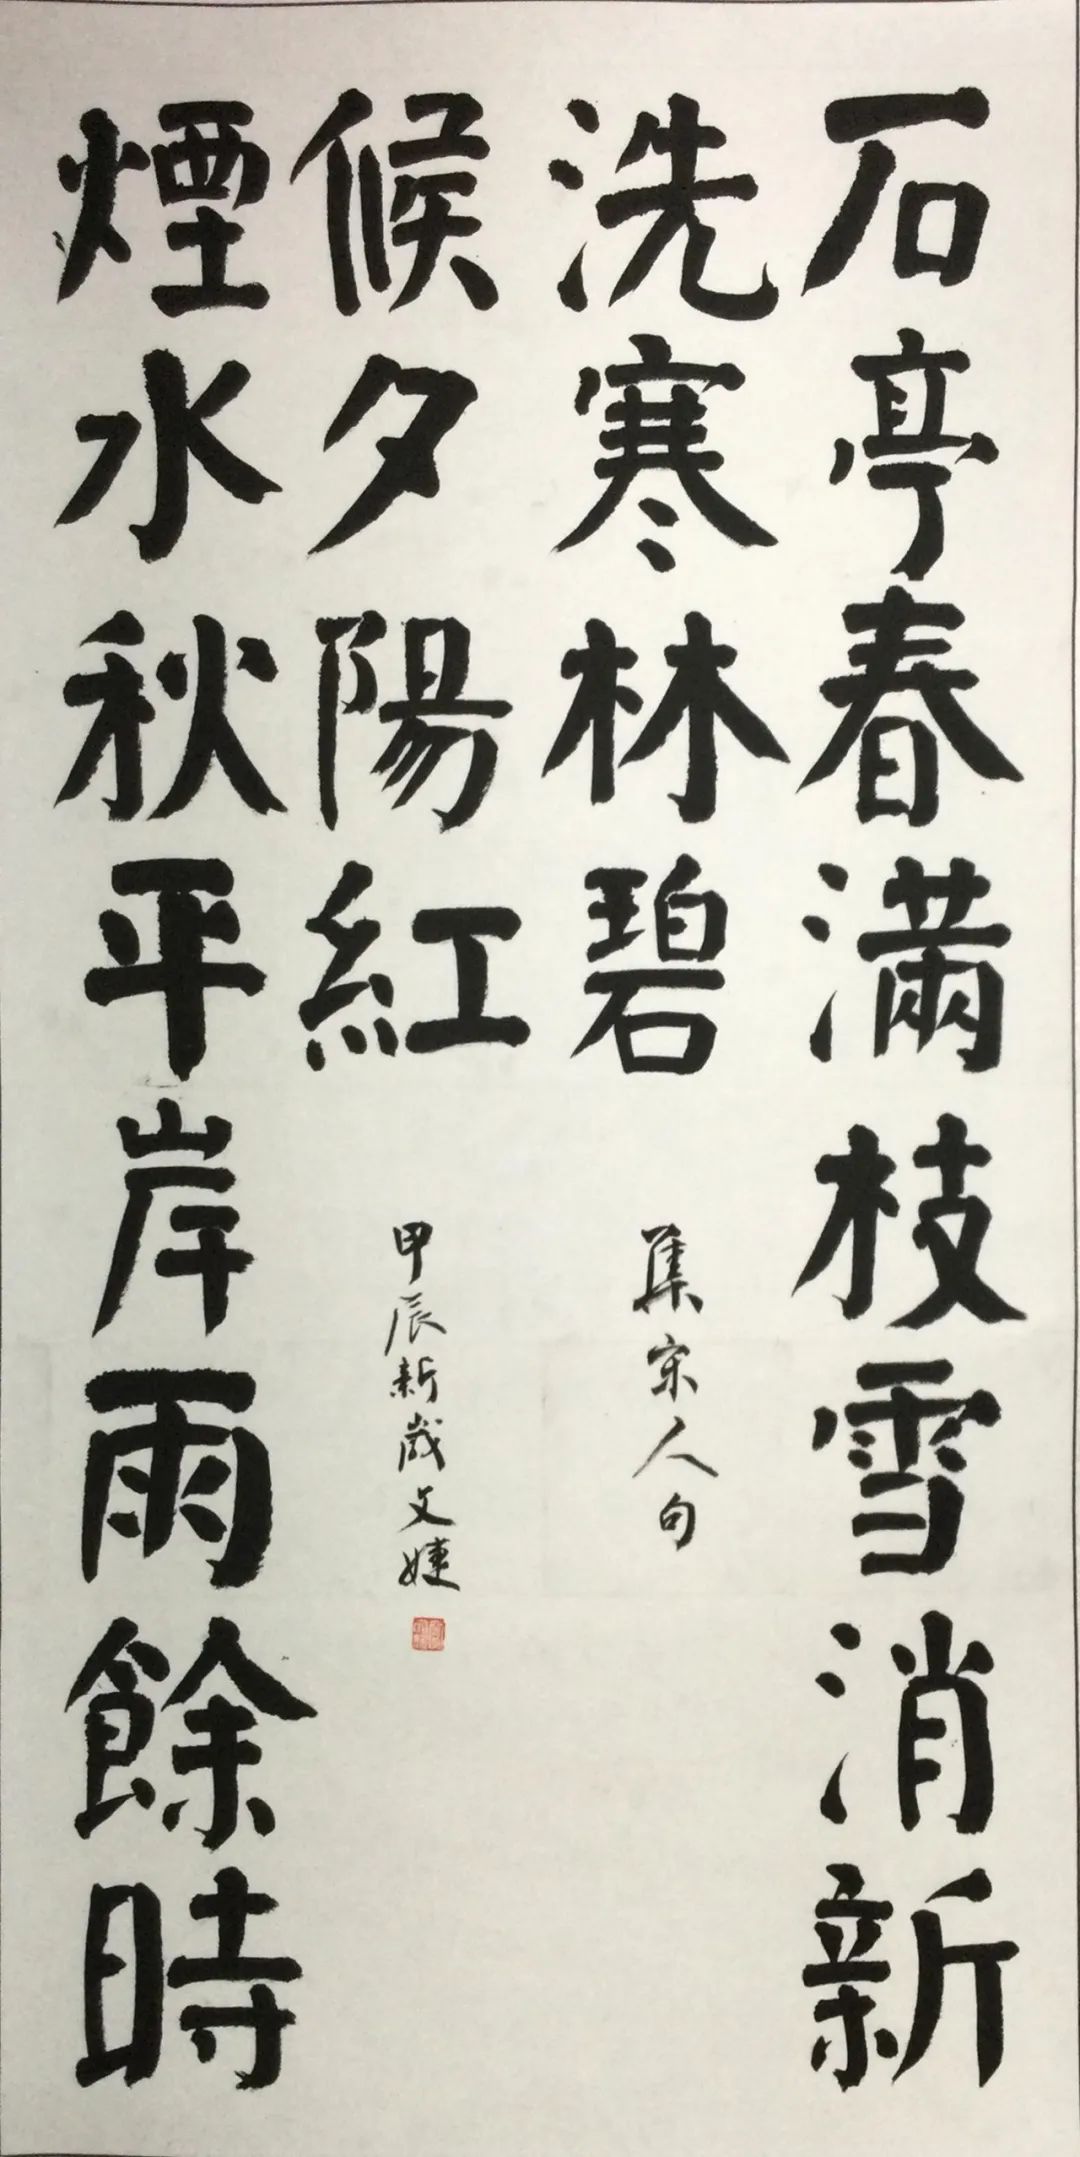 石亭春滿枝雪消新
洗寒林碧
集宋人句
煙水秋平岸雨餘時
候夕陽紅
甲辰新歲文婕